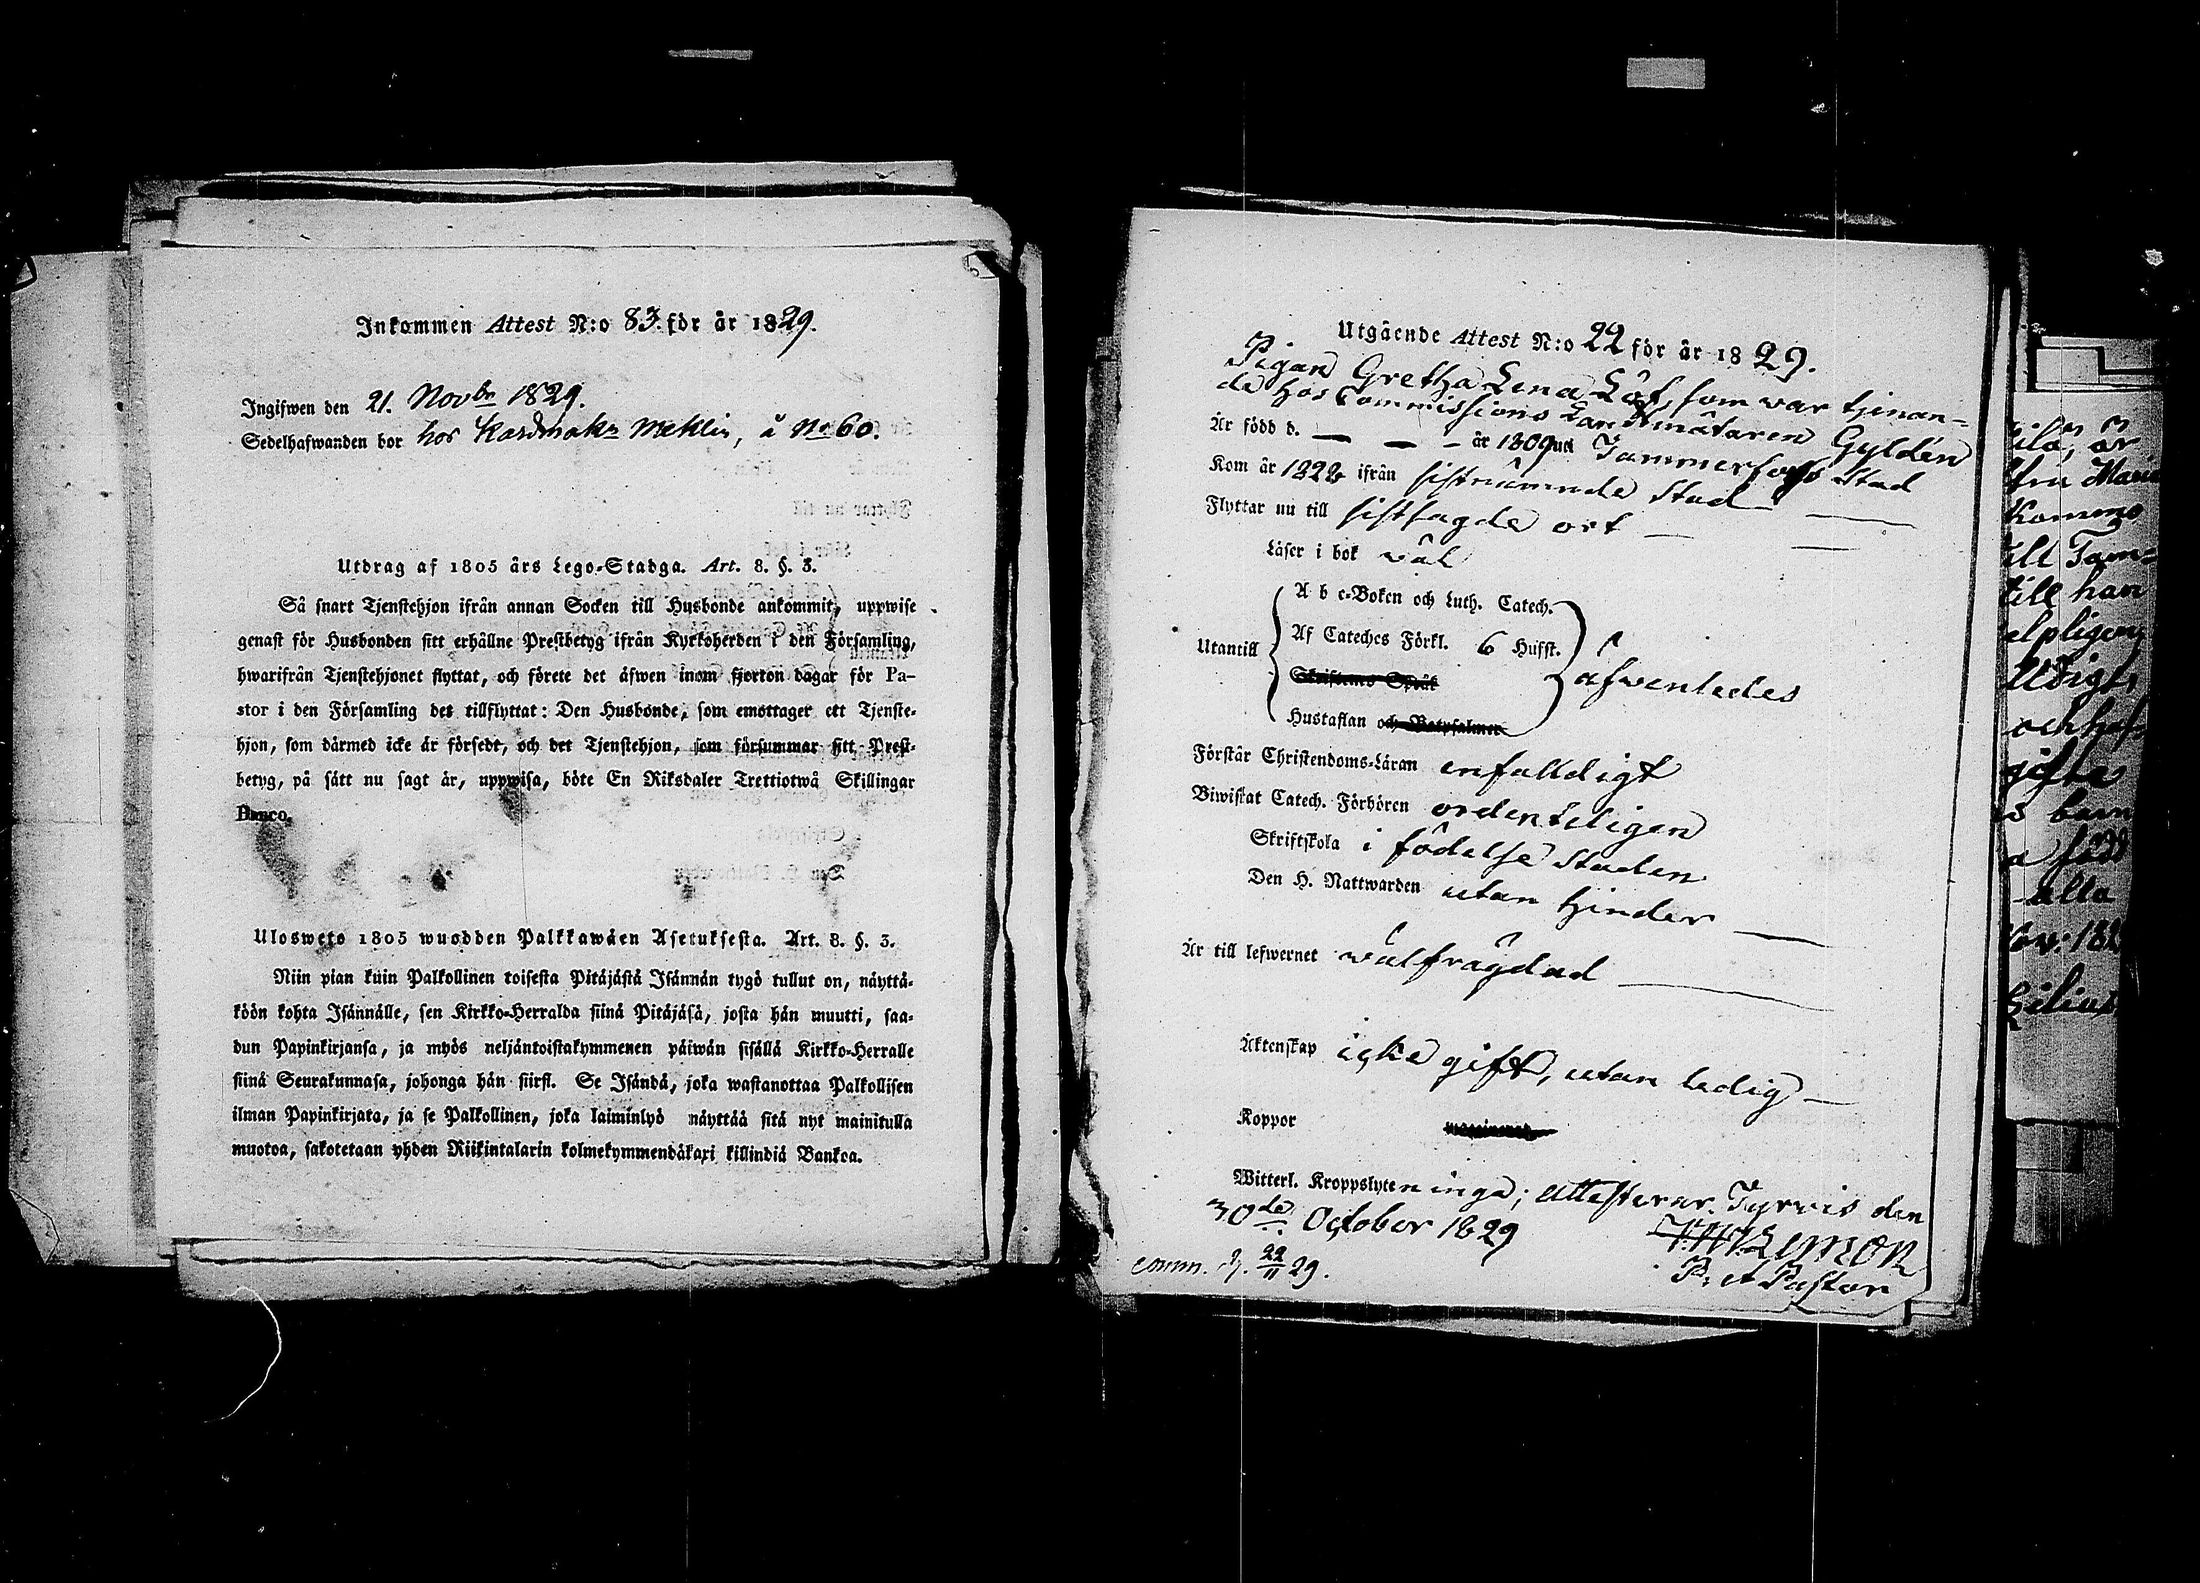 Inkommen Attest N:o 83. för år 1829.
Ingifwen den 21. Novbr 1829.
Sedelhafwanden bor hos Kardmakr Meklin, å No 60.
Utdrag af 1805 års Lego-Stadga. Art. 8. §. 3.
Så snart Tjenstehjon ifrån annan Socken till Husbonde ankommit, uppwise
genast för Husbonden sitt erhållne Prestbetyg ifrån Kyrkoherden i den Församling,
hwarifrån Tjenstehjonet flyttat, och förete det äfwen inom fjorton dagar för Pa-
stor i den Församling det tillflyttat: Den Husbonde, som emottager ett Tjenste-
hjon, som därmed icke är försedt, och det Tjenstehjon, som försummar sitt Prest-
betyg, på sätt nu sagt är, uppwisa, böte En Riksdaler Trettiotwå Skillingar
Banco.
Ulosweto 1805 wuodden Palkkawäen Asetuksesta. Art. 8. §. 3.
Niin pian kuin Palkollinen toisesta Pitäjästä Isännän tygö tullut on, näyttä-
köön kohta Isännälle, sen Kirkko-Herralda siinä Pitäjäsä, josta hän muutti, saa-
dun Papinkirjansa, ja myös neljäntoistakymmenen päiwän sisällä Kirkko-Herralle
siinä Seurakunnasa, johonga hän siirsi. Se Isändä, joka wastanottaa Palkollisen
ilman Papinkirjata, ja se Palkollinen, joka laiminlyö näyttää sitä nyt mainitulla
muotoa, sakotetaan yhden Riikintalarin kolmekymmendäkaxi killindiä Bankoa.
Utgående Attest N:o 22 för år 1829.
Pigan Gretha Lena Löf, som war tjenan-
de hos Commissions Landtmätaren Gyldén
Är född d. — — — år 1809 uti Tammerfors Stad
Kom år 1828 ifrån sistnämnde Stad
Flyttar nu till sistsagde ort —
Läser i bok wäl
A b c-Boken och Luth. Catech.
Utantill Af Cateches Förkl. 6 Hufst. äfwenledes
Skriftenes Språk
Hustaflan och Botpsalmer
Förstår Christendoms-Läran enfaldigt
Biwistat Catech. Förhören ordenteligen
Skriftskola i födelse Staden
Den H. Nattwarden utan hinder
Är till lefwernet wälfrägdad
Äktenskap icke gift, utan ledig —
Koppor
Witterl. Kroppslyten inga; attesterar. Tyrvis den
30de October 1829
P: et Pastor
comm. d. 22/11 29.
ila, är
Kommo
till Tam-
till han
och haf
gifta
barn
född
alla
Nov: 182